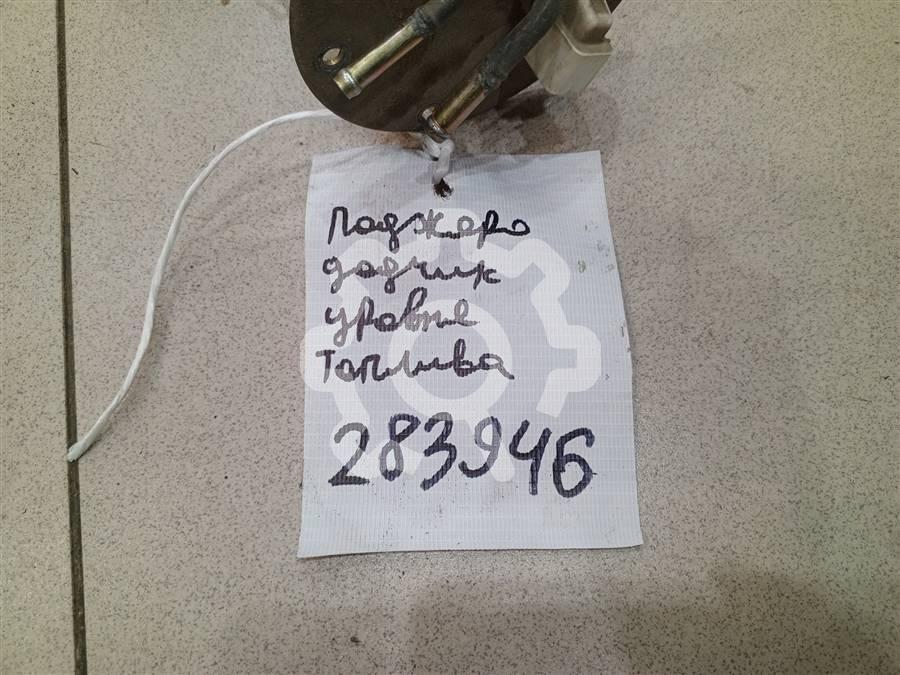 Паджеро
датчик
уровня
топлива
283946